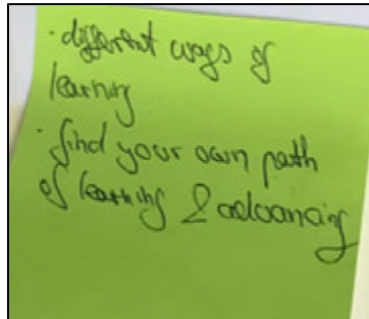 · different ways of
learning
· find your own path
of learning & advancing